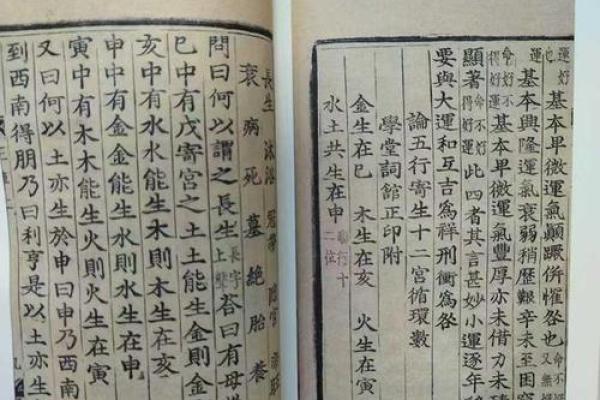 運好 基本早微運氣顛蹶併懼咎也 又無
運 基本興隆運氣衰弱稍歷艱辛未至困
基本早微運氣豐厚亦未借力未
顯著 命不好 得好運 此四者其言甚妙小運逐年
要與大運和互吉為祥刑衝為咎
論五行寄生十二宮循環數
學堂詞館正印附
金生在巳 木生在亥 火生在寅
水土共生在申 二位
長生 沐浴 冠帶 臨官 帝旺
衰 病 死 墓 絕 胎 養
問曰何以謂之長生 長字上聲 答曰有母
巳中有戊寄宮之土土能生金則
亥中有水水能生木則木生在亥
申中有金金能生水則水生在申
寅中有木木能生火則火生在寅
又曰何以土亦生於申曰申乃西南
到西南得朋乃曰利亨是以土亦生